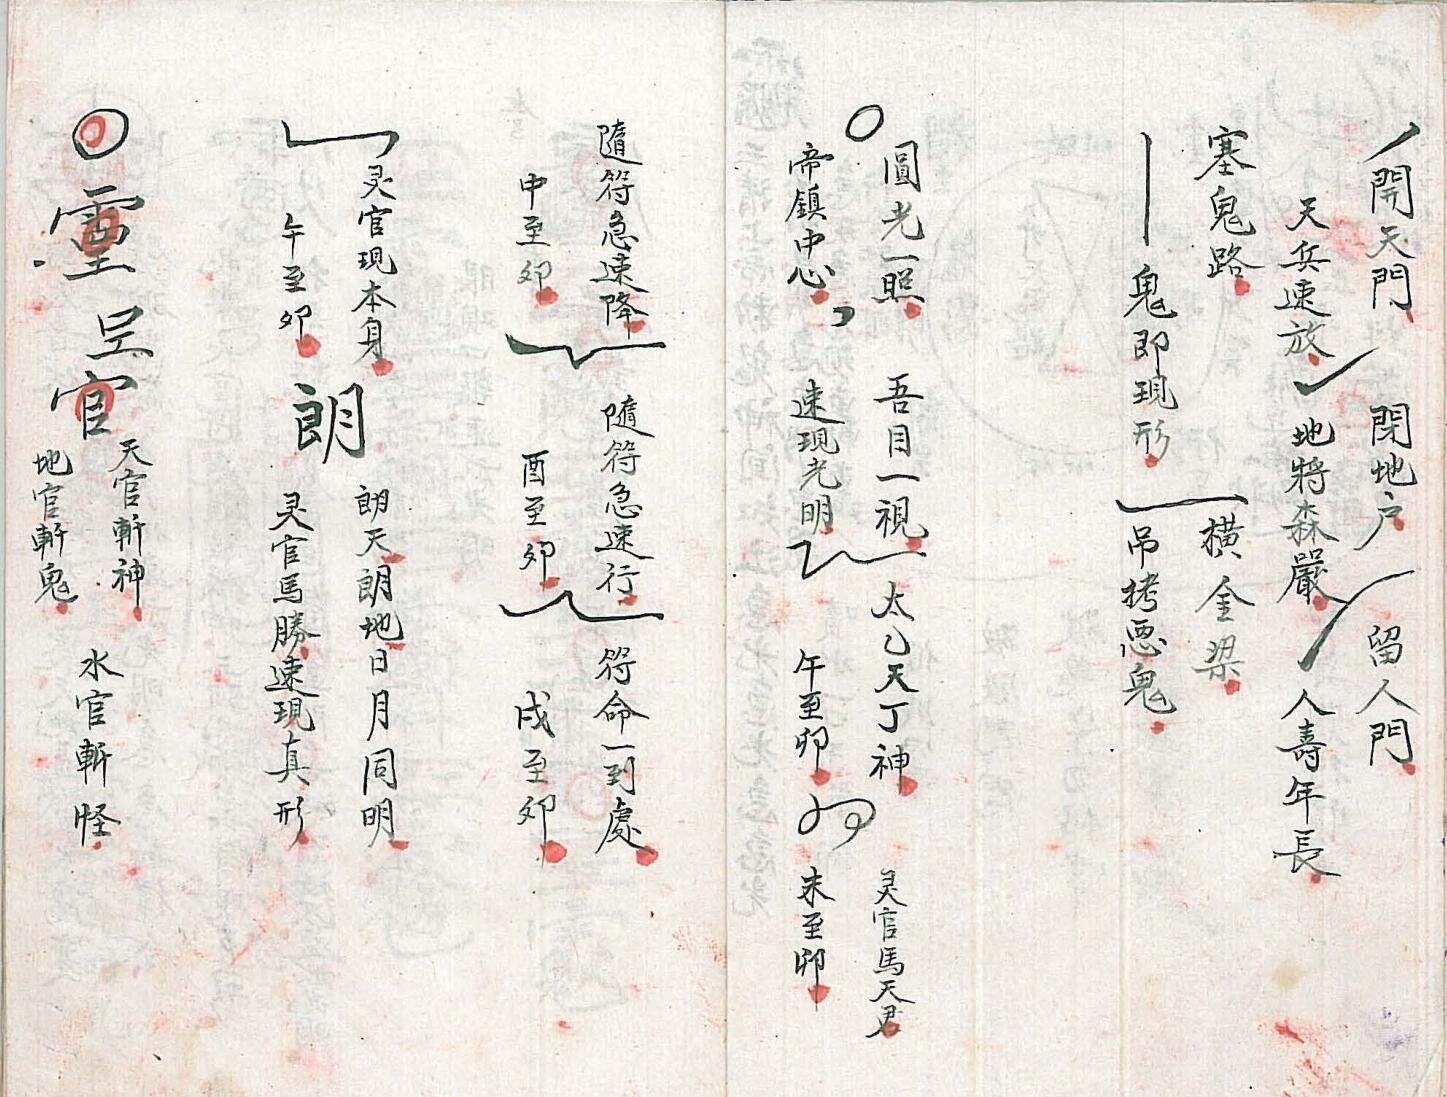 開天門
天兵速放
閉地户
地將森嚴
留人門
人壽年長
塞鬼路
鬼即現形
橫金梁
吊拷惡鬼
圓光一照
帝鎮中心
吾目一視
速現光明
太乙天丁神
午至卯
灵官馬天君
未至卯
隨符急速降
申至卯
隨符急速行
酉至卯
符命一到處
戌至卯
灵官現本身
午至卯
朗
朗天朗地日月同明
灵官馬勝速現真形
靈
官
天官斬神
地官斬鬼
水官斬怪